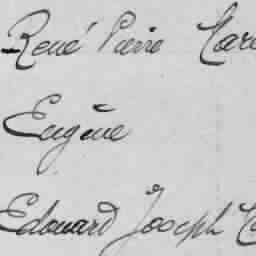 René Pierre Mar
Eugène
Edouard Joseph